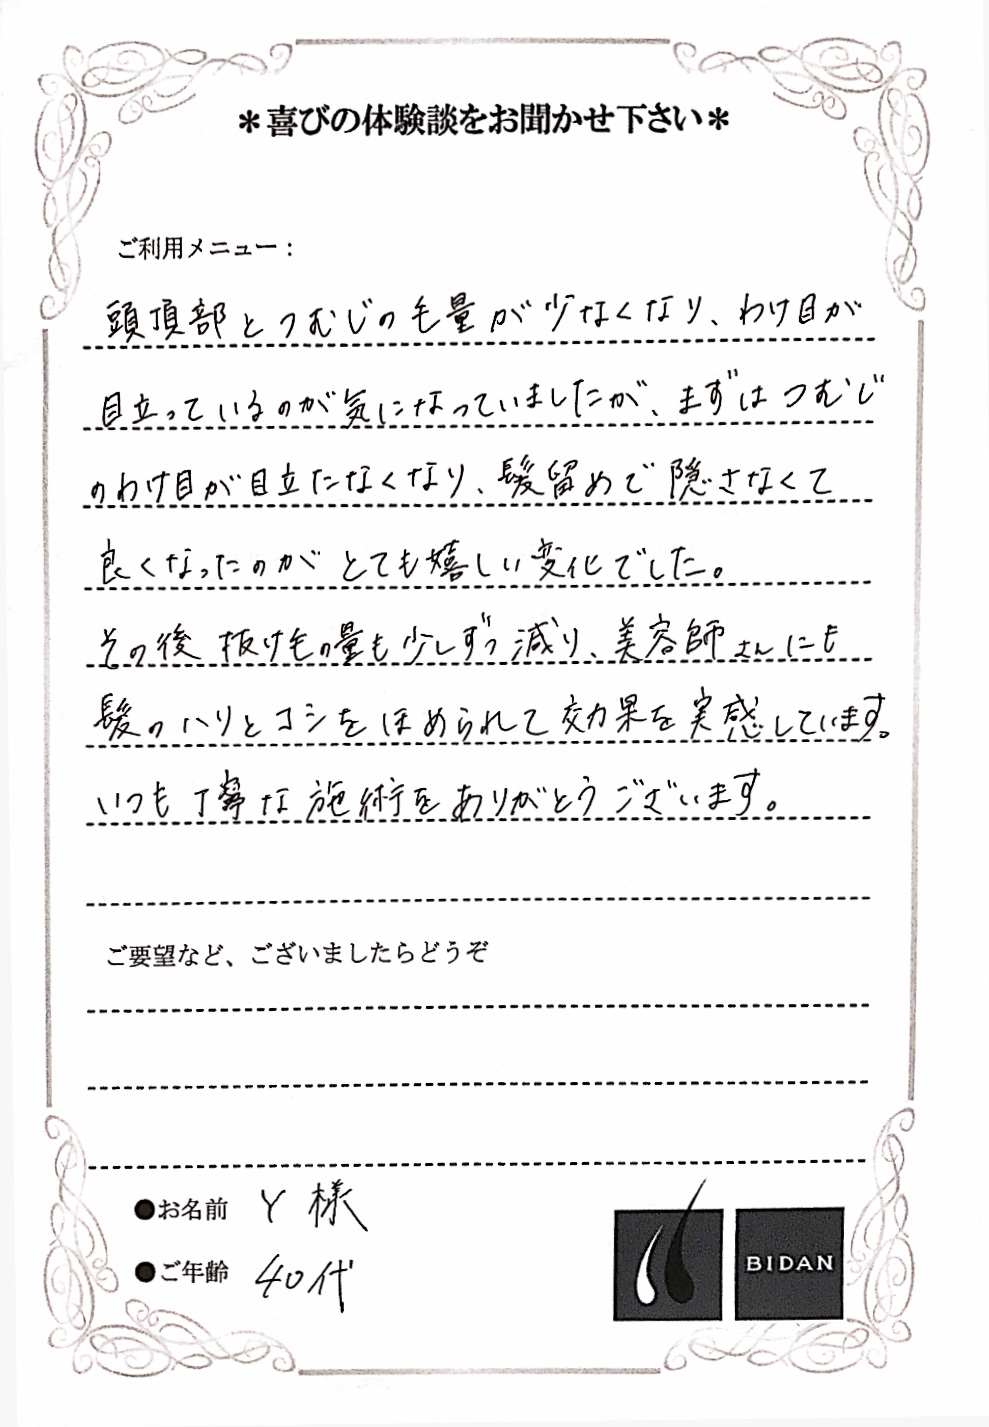 ＊喜びの体験談をお聞かせ下さい＊
ご利用メニュー：
頭頂部とつむじの毛量が少なくなり、わけ目が
目立っているのが気になっていましたが、まずはつむじ
のわけ目が目立たなくなり、髪留めで隠さなくて
良くなったのがとても嬉しい変化でした。
その後抜け毛の量も少しずつ減り、美容師さんにも
髪のハリとコシをほめられて効果を実感しています。
いつも丁寧な施術をありがとうございます。
ご要望など、ございましたらどうぞ
●お名前 Y様
●ご年齢 40代
BIDAN